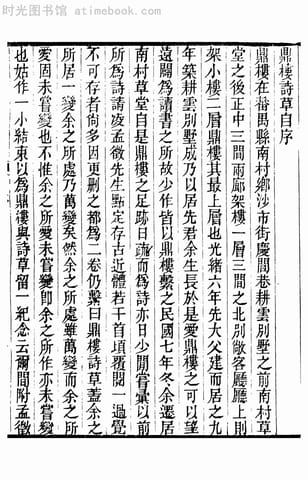 时光图书馆 atimebook.com
鼎樓詩草自序
鼎樓在番禺縣南村鄉沙市街慶閭巷耕雲別墅之前南村草
堂之後正中三間兩廊架樓一層三間之北別敞客廳廳上則
架小樓二層鼎樓其最上層也光緒六年先大父建而居之九
年築耕雲別墅成乃以居先君余生長於是愛鼎樓之可以望
遠闢爲讀書之所故少作皆以鼎樓繫之民國七年冬余遷居
南村草堂自是鼎樓之足跡日疏而爲詩亦日少閒嘗彙以前
所爲詩請凌孟徵先生點定存古近體若干首項覆閱一過覺
不可存者尚多因更刪之都爲二卷仍繫曰鼎樓詩草蓋余之
所居一變余之所處乃萬變矣然余之所處雖萬變而余之所
愛固未嘗變也不惟余之所愛未嘗變卽余之所作亦未嘗變
也姑作一小結束以爲鼎樓與詩草留一紀念云爾閒附孟徵